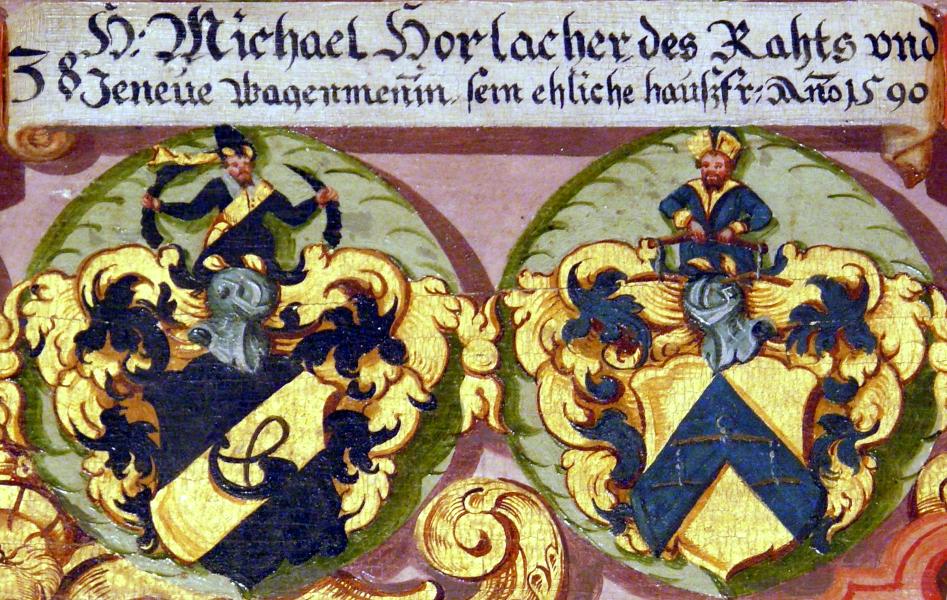 H: Michael Horlacher, des Rahts vnd
38 Jeneüe Wagenmeñin, sem ehliche haußfr: Año 1590